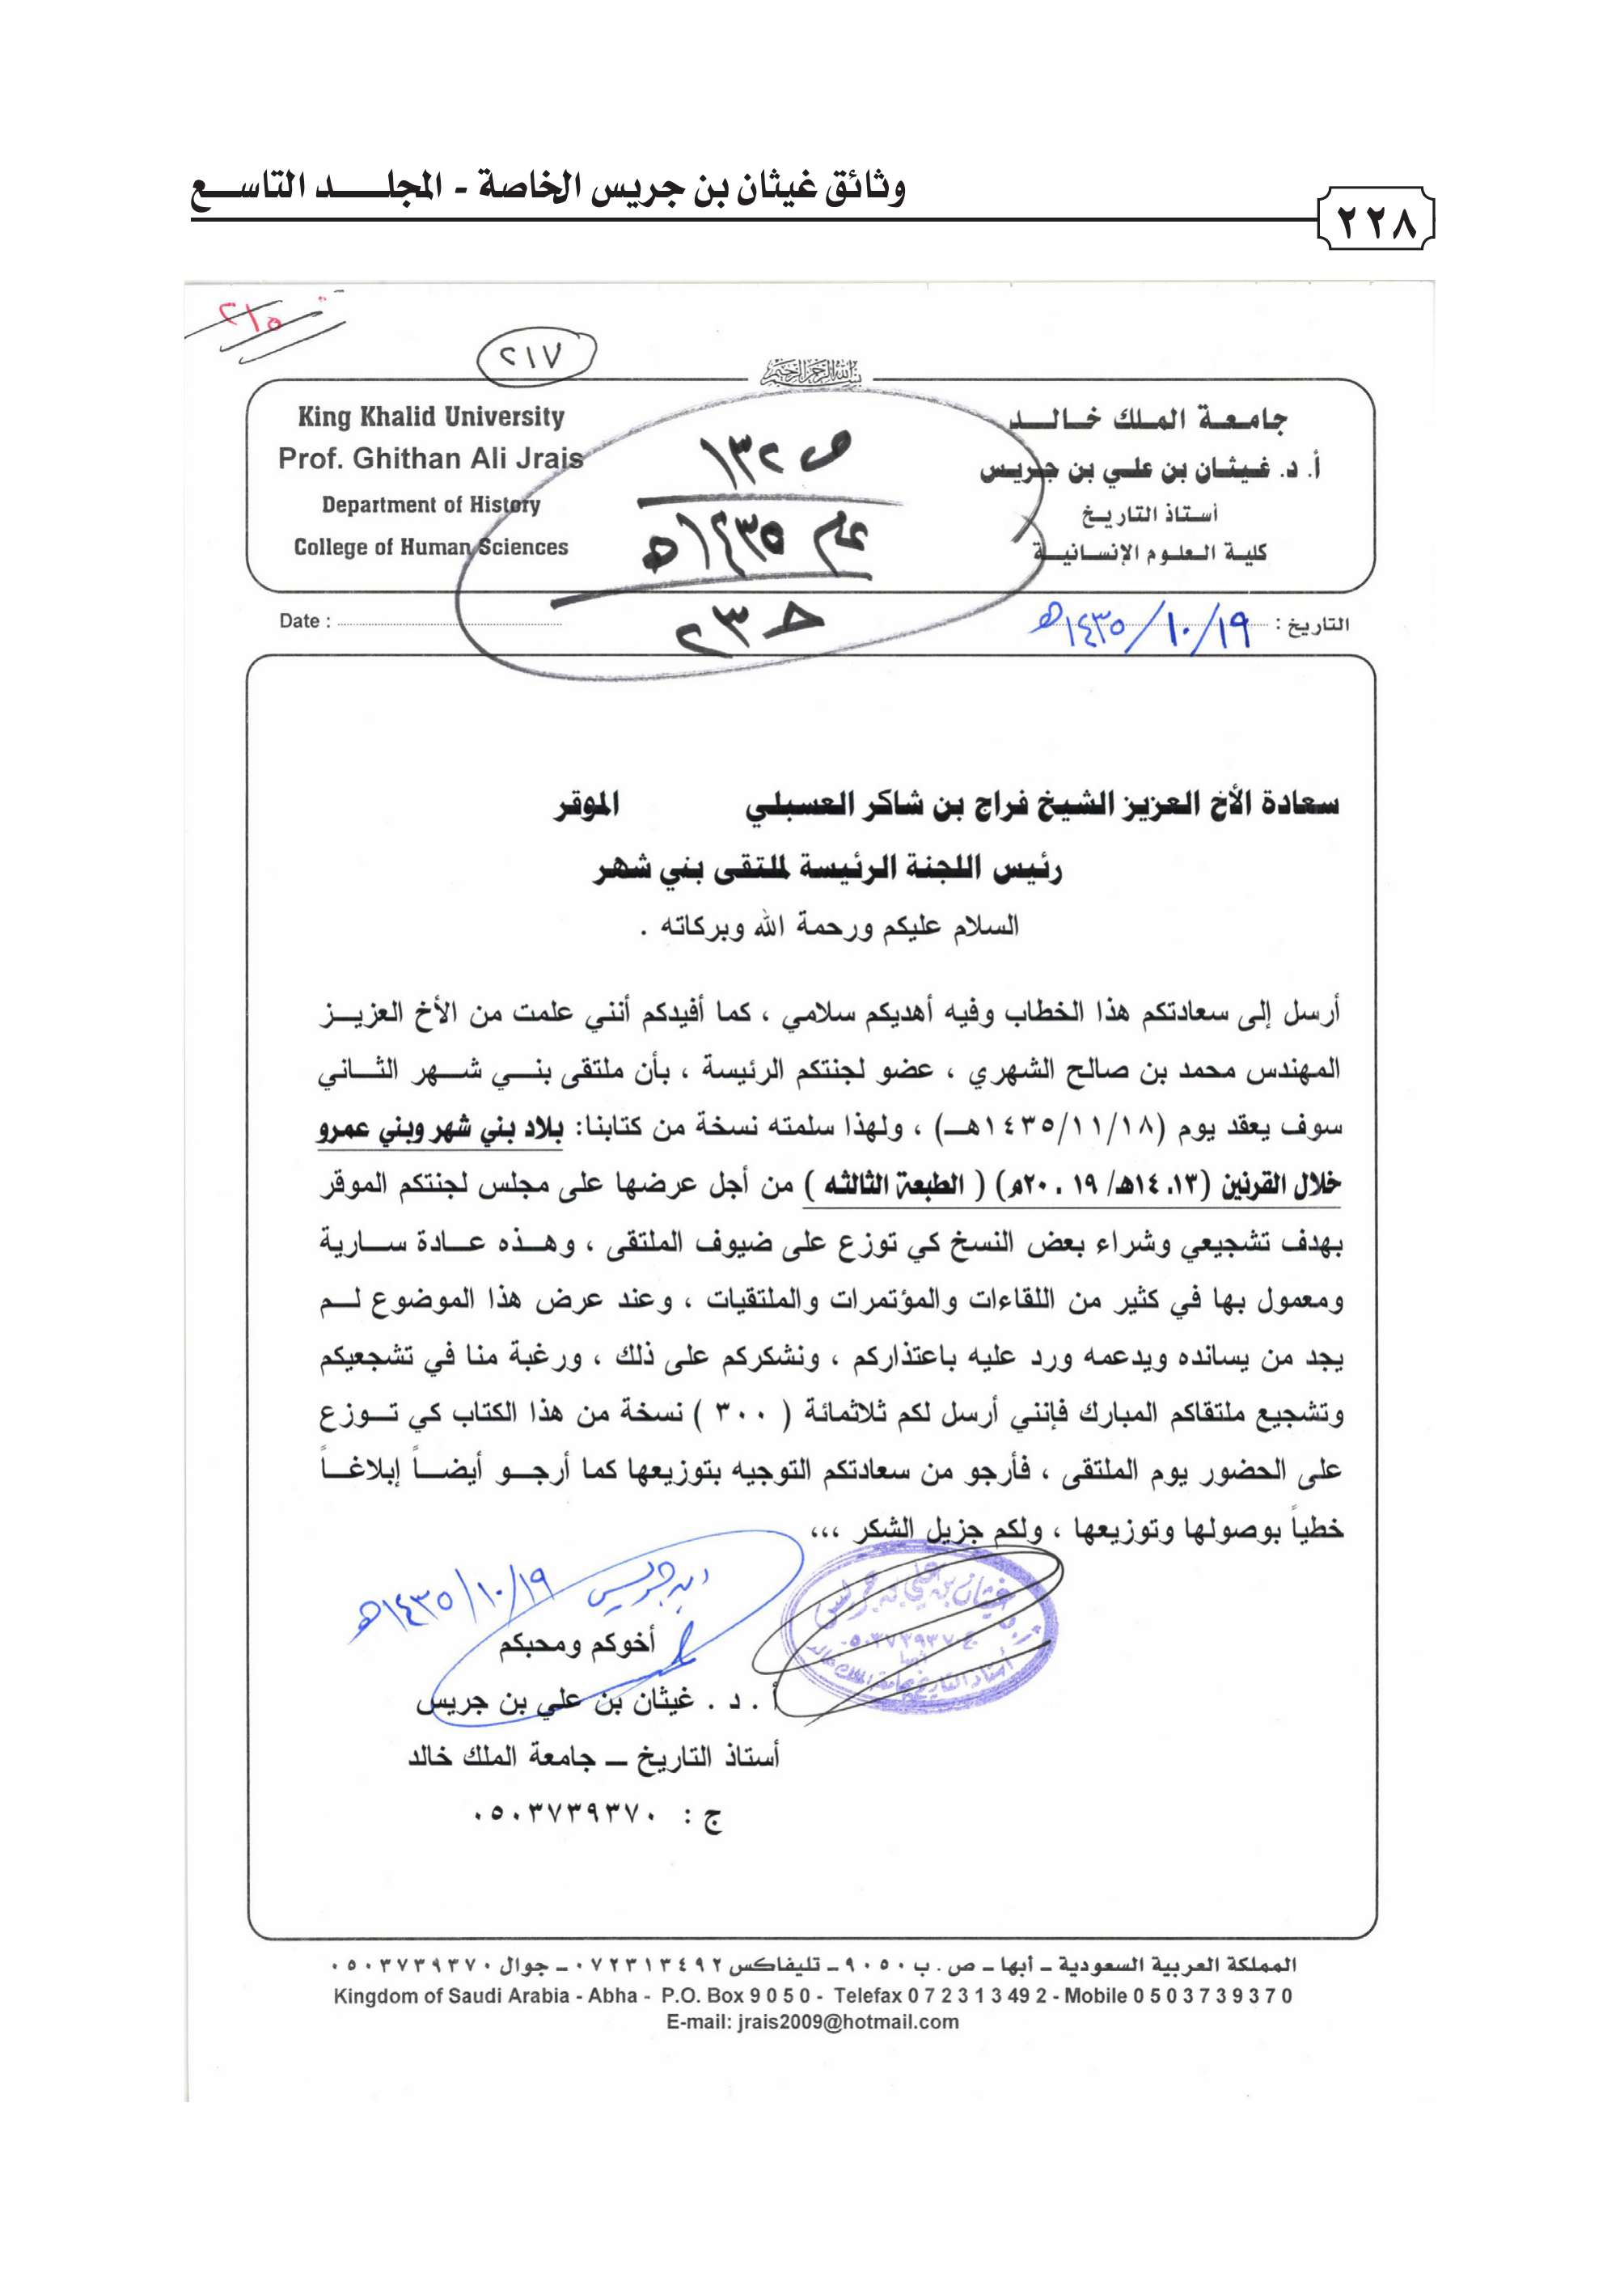 وثائق غيثان بن جريس الخاصة - المجلـــــد التاســـع
٢٢٨
٢١٥
٢١٧
بسم الله الرحمن الرحيم
جامـعـة المـلـك خـالـــد
أ. د. غـيـثـان بن علـي بن جريـس
أسـتـاذ التاريـخ
كليـة الـعـلـوم الإنسـانيـــة
King Khalid University
Prof. Ghithan Ali Jrais
Department of History
College of Human Sciences
ص ١٣٢
عام ١٤٣٥هـ
التاريخ : ١٩/١٠/١٤٣٥هـ
Date :
سعادة الأخ العزيز الشيخ فراج بن شاكر العسبلي الموقر
رئيس اللجنة الرئيسة لملتقى بني شهر
السلام عليكم ورحمة الله وبركاته .
أرسل إلى سعادتكم هذا الخطاب وفيه أهديكم سلامي ، كما أفيدكم أنني علمت من الأخ العزيـــز
المهندس محمد بن صالح الشهري ، عضو لجنتكم الرئيسة ، بأن ملتقى بنـــي شـــهر الثـــاني
سوف يعقد يوم (١٤٣٥/١١/١٨هـــ) ، ولهذا سلمته نسخة من كتابنا: بلاد بني شهر وبني عمرو
خلال القرنين (١٣. ١٤هـ/ ١٩ . ٢٠م) ( الطبعة الثالثه ) من أجل عرضها على مجلس لجنتكم الموقر
بهدف تشجيعي وشراء بعض النسخ كي توزع على ضيوف الملتقى ، وهـــذه عـــادة ســـارية
ومعمول بها في كثير من اللقاءات والمؤتمرات والملتقيات ، وعند عرض هذا الموضوع لـــم
يجد من يسانده ويدعمه ورد عليه باعتذاركم ، ونشكركم على ذلك ، ورغبة منا في تشجعيكم
وتشجيع ملتقاكم المبارك فإنني أرسل لكم ثلاثمائة ( ٣٠٠ ) نسخة من هذا الكتاب كي تـــوزع
على الحضور يوم الملتقى ، فأرجو من سعادتكم التوجيه بتوزيعها كما أرجـــو أيضـــاً إبلاغـــاً
خطياً بوصولها وتوزيعها ، ولكم جزيل الشكر ،،،
بن جريس
١٩/١٠/١٤٣٥هـ
أخوكم ومحبكم
أ . د . غيثان بن علي بن جريس
أستاذ التاريخ ـــ جامعة الملك خالد
ج : ٠٥٠٣٧٣٩٣٧٠
غيثان بن علي بن جريس
ج ٠٥٠٣٧٣٩٣٧٠
أبها
أستاذ التاريخ بجامعة الملك خالد
المملكة العربية السعودية ــ أبها ــ ص . ب ٩٠٥٠ ــ تليفاكس ٠٧٢٣١٣٤٩٢ ــ جوال ٠٥٠٣٧٣٩٣٧٠
Kingdom of Saudi Arabia - Abha - P.O. Box 9 0 5 0 - Telefax 0 7 2 3 1 3 49 2 - Mobile 0 5 0 3 7 3 9 3 7 0
E-mail: jrais2009@hotmail.com